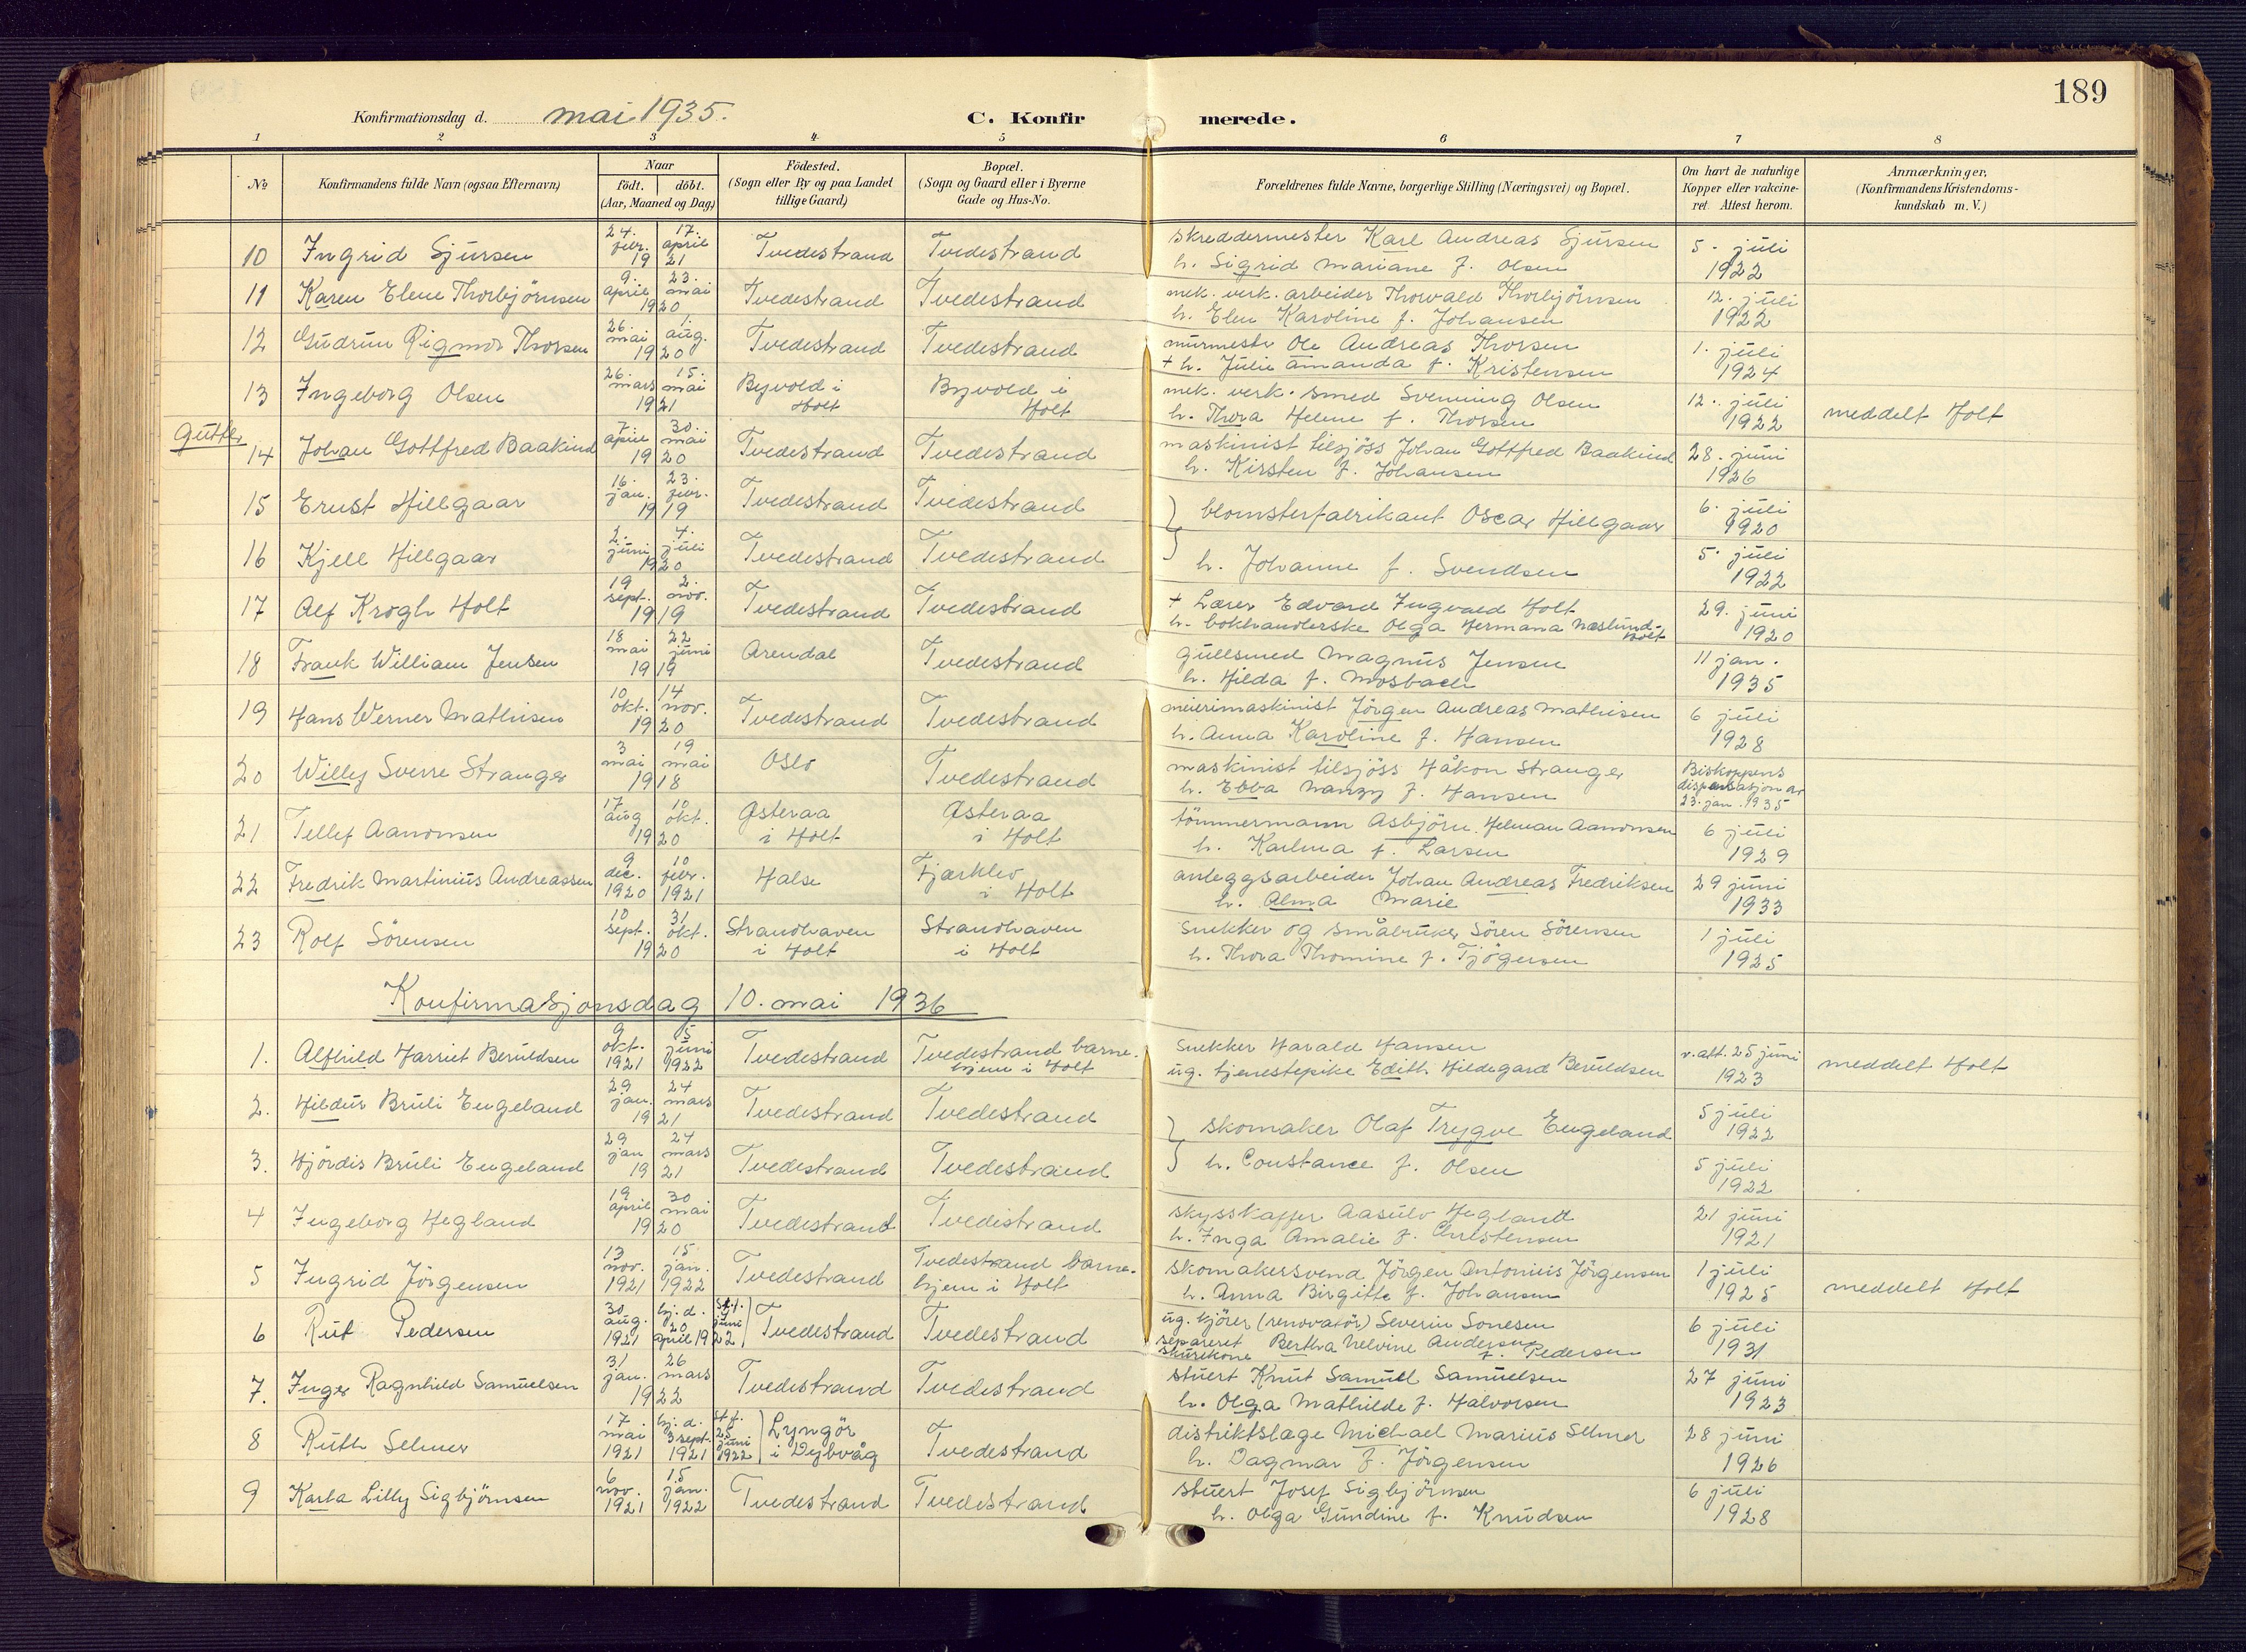 189
Konfirmationsdag d. mai 1935.
C. Konfirmerede.
1 2 3 4 5 6 7 8
No
Konfirmandens fulde Navn (ogsaa Efternavn)
Naar
födt. döbt.
(Aar, Maaned og Dag)
Födested.
(Sogn eller By og paa Landet
tillige Gaard)
Bopæl.
(Sogn og Gaard eller i Byerne
Gade og Hus-No.
Forældrenes fulde Navne, borgerlige Stilling (Næringsvei) og Bopæl.
Om havt de naturlige
Kopper eller vakcine-
ret. Attest herom.
Anmærkninger,
(Konfirmandens Kristendoms-
kundskab m. V.)
10 Ingrid Sjursen 24. febr. 17. april 1921 Tvedestrand Tvedestrand skreddermester Karl Andreas Sjursen 5. juli
h. Sigrid Mariane f. Olsen 1922
11 Karen Elene Thorbjörnsen 9. april 23. mai 1920 Tvedestrand Tvedestrand mek. verk. arbeider Thorvald Thorbjörnsen 12. juli
h. Elen Karoline f. Johansen 1922
12 Gudrun Rigmor Thorsen 26. mai 1. aug. 1920 Tvedestrand Tvedestrand murmestr Ole Andreas Thorsen 1. juli
+ h. Julie Amanda f. Kristensen 1924
13 Ingeborg Olsen 26. mars 15. mai 1921 Byvold i Holt Byvold i Holt mek. verk. smed Svenning Olsen 12. juli
h. Thora Helene f. Thorsen 1922 meddelt Holt
Gutter
14 Johan Gottfred Baakind 7. april 30. mai 1920 Tvedestrand Tvedestrand maskinist tilsjöss Johan Gottfred Baakind 28. juni
h. Kirsten f. Johansen 1926
15 Ernst Hillgaar 16. jan. 23. febr. 1919 Tvedestrand Tvedestrand } blomsterfabrikant Oscar Hillgaar 6. juli 1920
16 Kjell Hillgaar 2. juni 4. juli 1920 Tvedestrand Tvedestrand h. Johanne f. Svendsen 5. juli 1922
17 Alf Krogh Holt 19 sept. 2. nov. 1919 Tvedestrand Tvedestrand + Lærer Edvard Ingvald Holt 29. juni
h. bokhandlerske Olga Hermana Næslund-Holt 1920
18 Frank William Jensen 18 mai 22 juni 1919 Arendal Tvedestrand Gullsmed Magnus Jensen 11 jan.
h. Hilda f. Mosbach 1935
19 Hans Werner Mathisen 10 okt. 14 nov. 1920 Tvedestrand Tvedestrand meierimaskinist Jörgen Andreas Mathisen 6 juli
h. Anna Karoline f. Hansen 1928
20 Willy Sverre Stranger 3 mai 19 mai 1918 Oslo Tvedestrand maskinist tilsjöss Håkon Stranger Biskoppens
h. Ebba Nanzy f. Hansen dispensasjon av 23. jan. 1935
21 Tellef Aanonsen 17 aug 10 okt. 1920 Østeraa i Holt Østeraa i Holt tömmermann Asbjörn Helman Aanonsen 6 juli
h. Karlma f. Larsen 1929
22 Fredrik Martinius Andreassen 9 dec. 1920 10 febr. 1921 Halse Fjærklev i Holt anleggsarbeider Johan Andreas Fredriksen 29 juni
h. Alma Marie 1933
23 Rolf Sörensen 10 sept. 31 okt. 1920 Strandhaven i Holt Strandhaven i Holt Snekker og småbruker Sören Sörensen 1 juli
h. Thora Thomine f. Tjögersen 1925
Konfirmasjonsdag 10. mai 1936
1. Alfhild Harriet Beruldsen 9 okt. 1921 5 juni 1922 Tvedestrand Tvedestrand barnehjem i Holt Snekker Harald Hansen v. att. 25 juni
ug. tjenestepike Edith Hildegard Beruldsen 1923 meddelt Holt
2. Hildur Bruli Engeland 29 jan. 24 mars 1921 Tvedestrand Tvedestrand } skomaker Olaf Trygve Engeland 5 juli 1922
3. Hjördis Bruli Engeland 29 jan 24 mars 1921 Tvedestrand Tvedestrand h. Constance f. Olsen 5 juli 1922
4 Ingeborg Hegland 19 april 30 mai 1920 Tvedestrand Tvedestrand skysskaffer Aasulv Hegland 21 juni
h. Inga Amalie f. Christensen 1921
5 Ingrid Jörgensen 13 nov. 1921 15 jan. 1922 Tvedestrand Tvedestrand barne-hjem i Holt skomakersvend Jörgen Antonius Jörgensen 1 juli
h. Anna Birgitte f. Johansen 1925 meddelt Holt
6 Rut Pedersen 30 aug. 1921 hj. d. 20 april 1922 st. f. juni Tvedestrand Tvedestrand ug. kjörer (renovatör) Severin Sonesen 6 juli
separeret skurekone Bertha Nelvine Andersen f. Pedersen 1931
7. Inger Ragnhild Samuelsen 31 jan. 26 mars 1922 Tvedestrand Tvedestrand stuert Knut Samuel Samuelsen 27 juni
h. Olga Mathilde f. Halvorsen 1923
8 Ruth Selmer 17 mai 1921 hj. d. 3 sept. 1921 st. f. 25 juni 1922 Lyngör i Dybvåg Tvedestrand distriktslæge Michael Marius Selmer 28 juni
h. Dagmar f. Jörgensen 1926
9 Karla Lilly Sigbjörnsen 6 nov. 1921 15 jan. 1922 Tvedestrand Tvedestrand stuert Josef Sigbjörnsen 6 juli
h. Olga Gundine f. Knudsen 1928